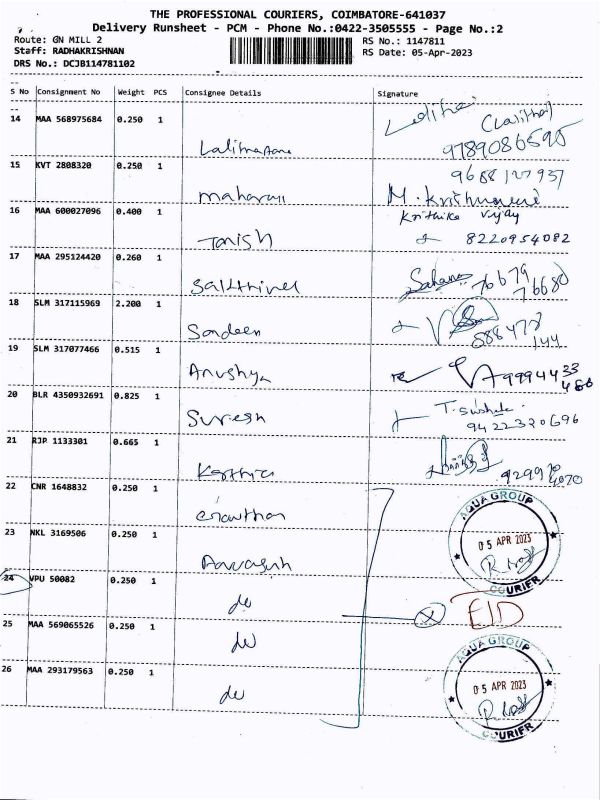 THE PROFESSIONAL COURIERS, COIMBATORE-641037
Delivery Runsheet - PCM - Phone No.:0422-3505555 - Page No.:2
Route: GN MILL 2
RS No.: 1147811
Staff: RADHAKRISHNAN
RS Date: 05-Apr-2023
DRS No.: DCJB114781102
S No Consignment No Weight PCS Consignee Details Signature
14 MAA 568975684 0.250 1
(Lalitha)
9789086595
15 KVT 2808320 0.250 1
9688127937
M. Krishnaveni
16 MAA 600027096 0.400 1
Krithika Vijay
Tanish 8220954082
17 MAA 295124420 0.260 1
Sakthivel 76679
76680
18 SLM 317115969 2.200 1
Sandeen
144
19 SLM 317077466 0.515 1
Anushya 9994433
20 BLR 4350932691 0.825 1
Suresh 9422320696
21 RJP 1133301 0.665 1
22 CNR 1648832 0.250 1
AQUA GROUP
05 APR 2023
COURIER
23 NKL 3169506 0.250 1
24 VPU 50082 0.250 1
do
25 MAA 569065526 0.250 1
do
AQUA GROUP
05 APR 2023
COURIER
26 MAA 293179563 0.250 1
do